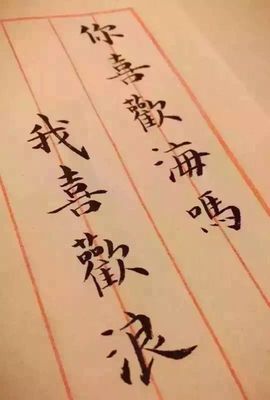 你喜歡海嗎
我喜歡浪